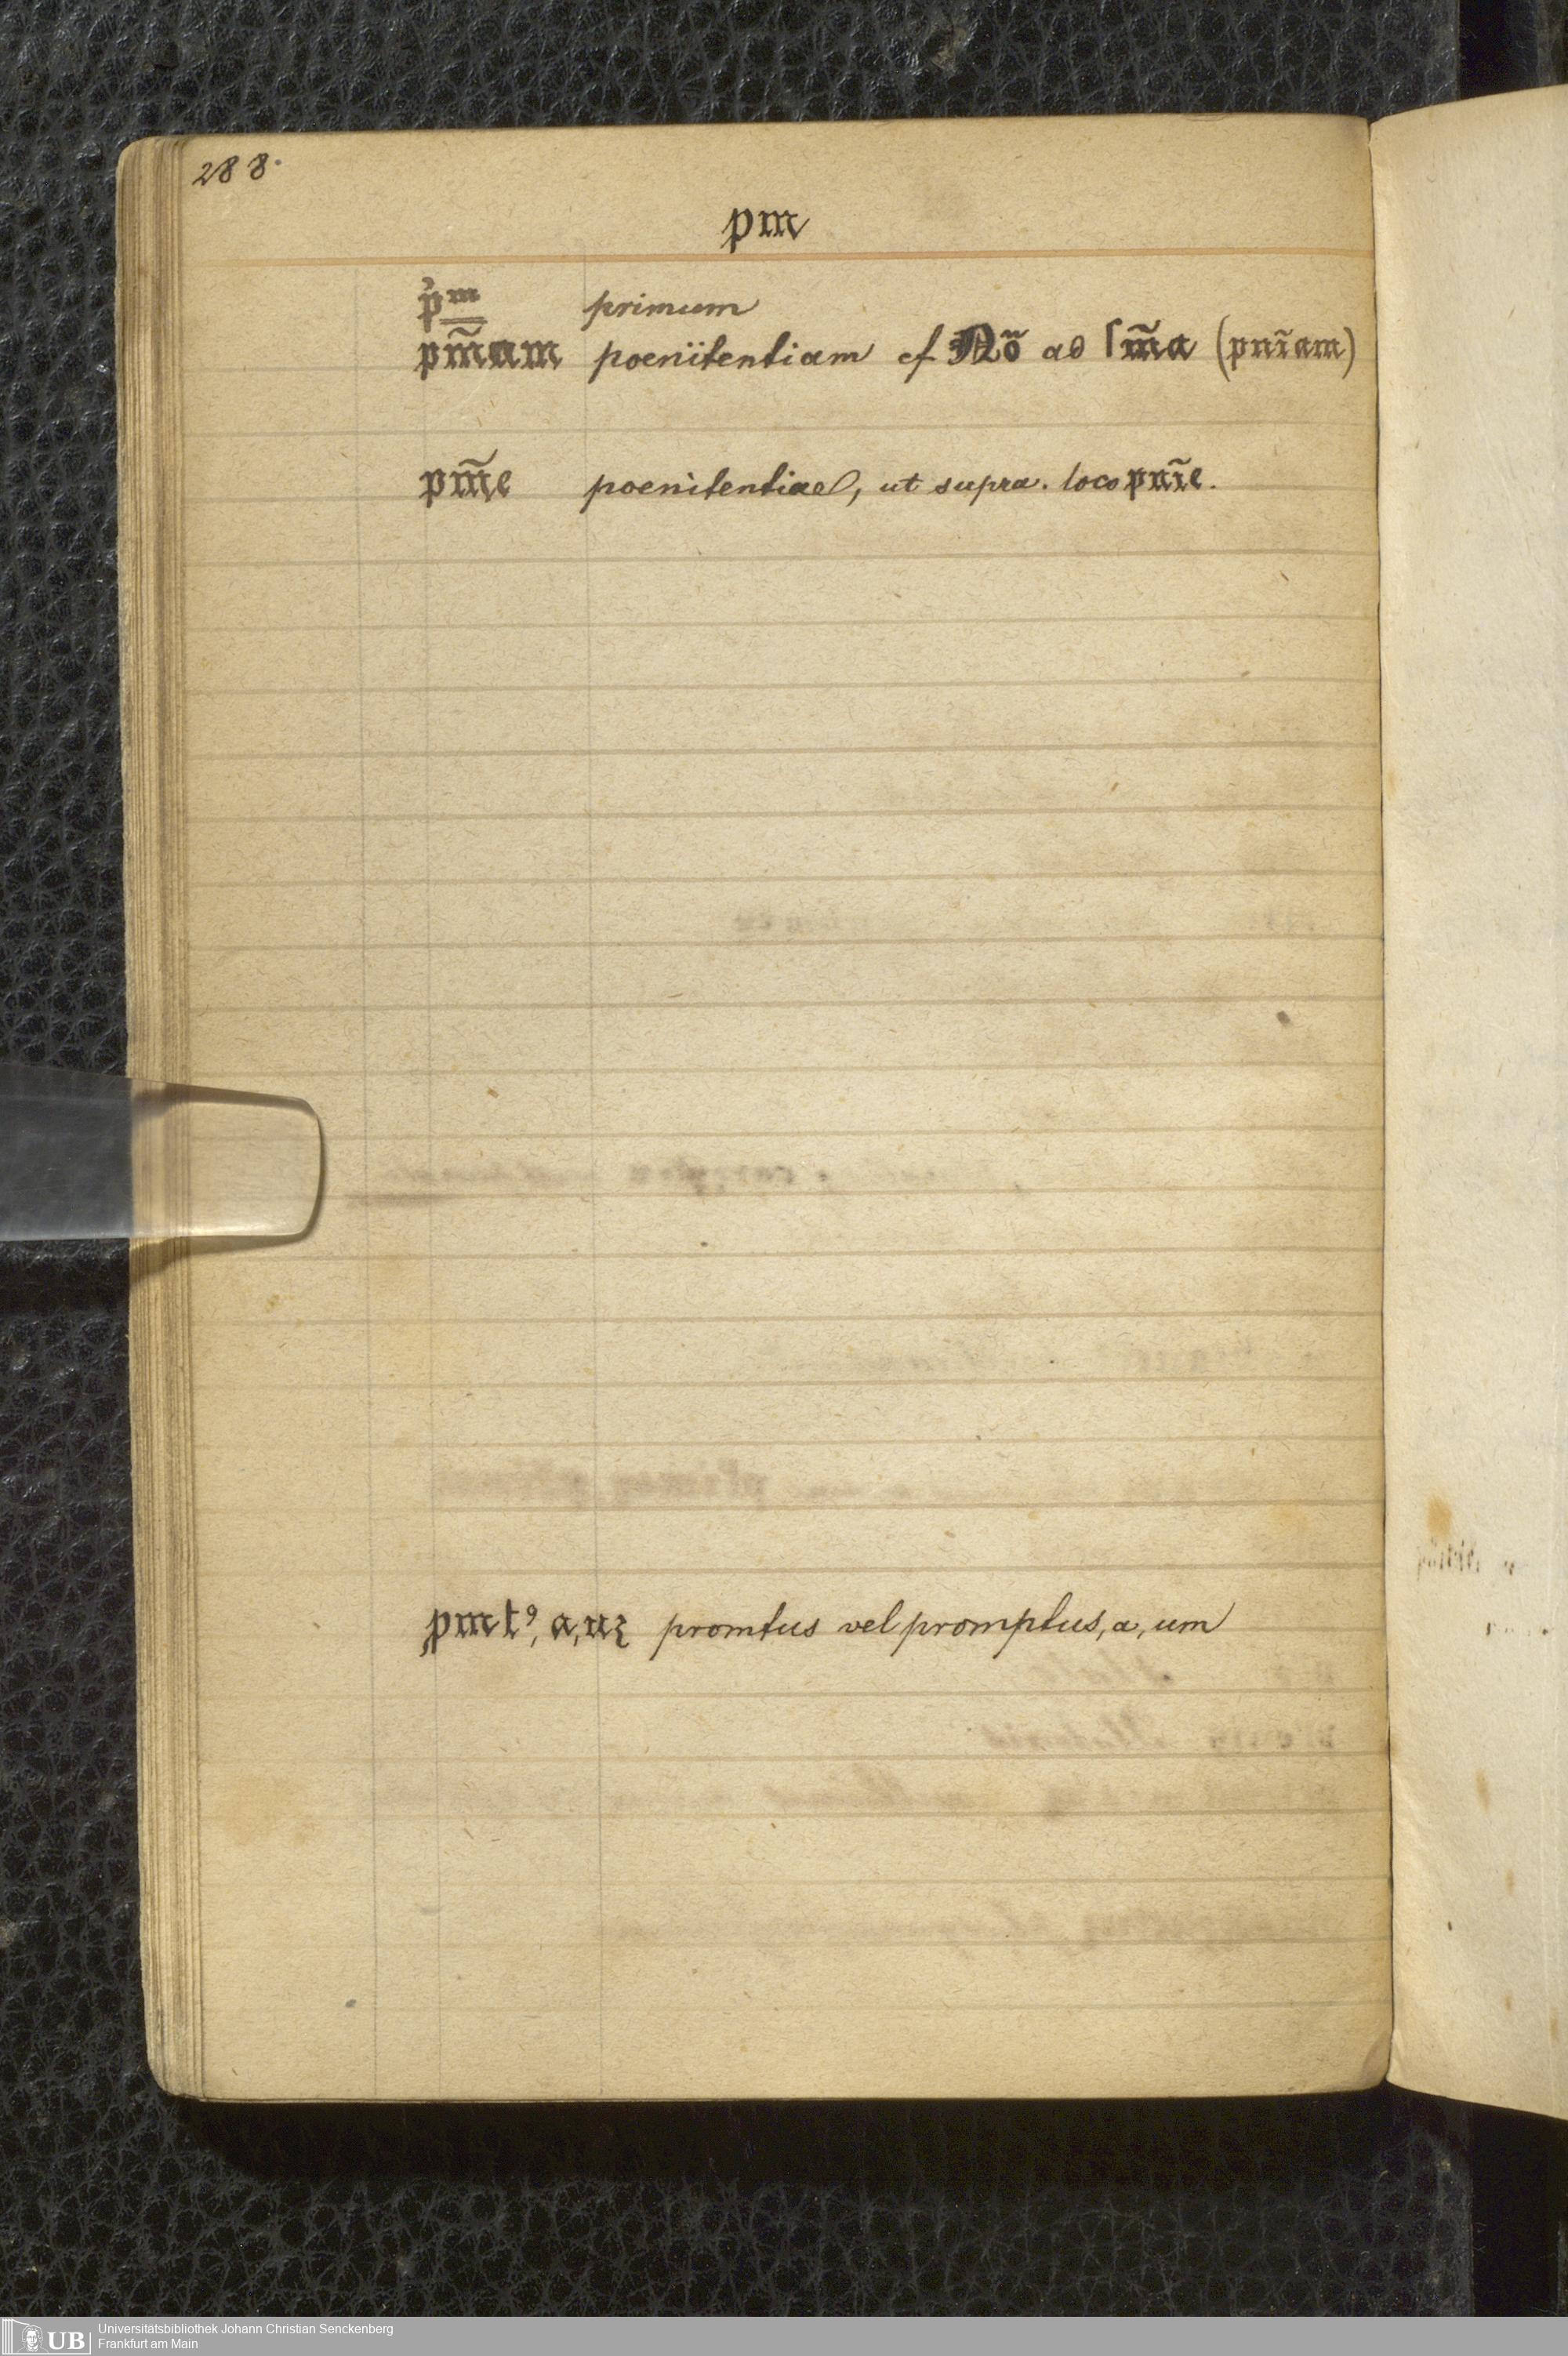 288.
pm
p̉ᵐ primum
pm̃am poenitentiam cf Nõ ad ſm̃a (pnĩam)
pm̃e poenitentiae, ut supra. loco pnĩe.
pmtꝰ, a, uꝫ promtus vel promptus, a, um
UB Universitätsbibliothek Johann Christian Senckenberg
Frankfurt am Main